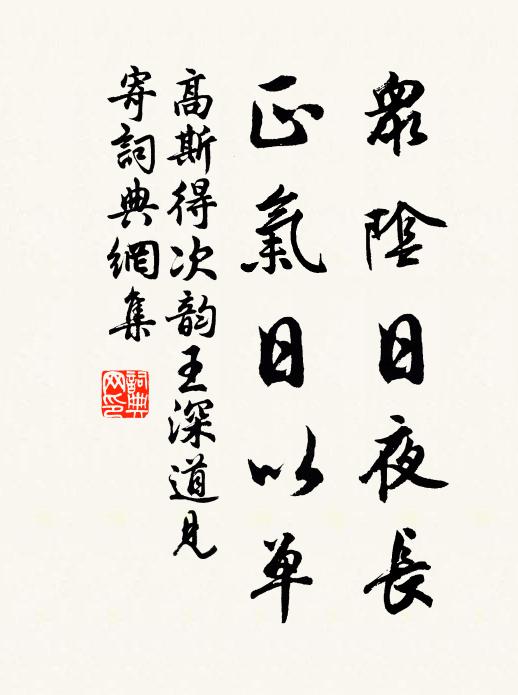 眾陰日夜長
正氣日以單
高斯得次韵王深道見
寄詞典網集
詞典
网印